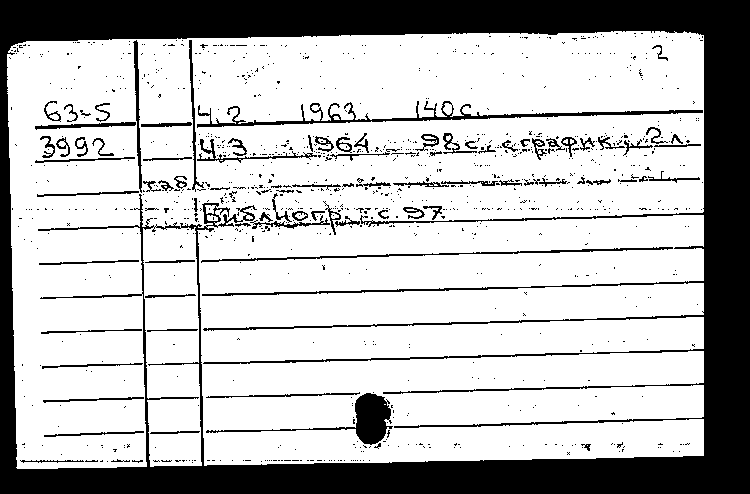 2
63-5 Ч.2. 1963. 140с.
3992 Ч.3 1964. 98с. с график., 2л.
табл.
Библиогр. с. 97